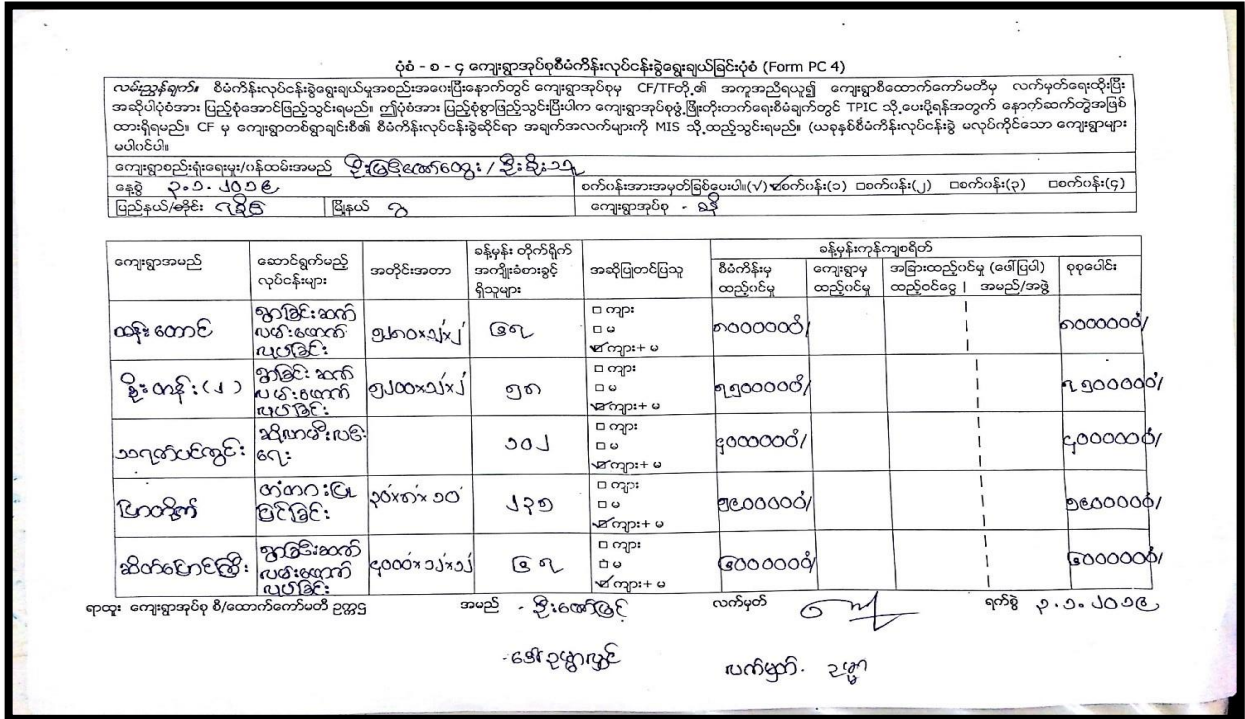 ပုံစံ - စ - ၄ ကျေးရွာအုပ်စုစီမံကိန်းလုပ်ငန်းခွဲရွေးချယ်ခြင်းပုံစံ (Form PC 4)
လမ်းညွှန်ချက်။ စီမံကိန်းလုပ်ငန်းခွဲရွေးချယ်မှုအစည်းအဝေးပြီးနောက်တွင် ကျေးရွာအုပ်စုမှ CF/TFတို့၏ အကူအညီရယူ၍ ကျေးရွာစီထောက်ကော်မတီမှ လက်မှတ်ရေးထိုးပြီး
အဆိုပါပုံစံအား ပြည့်စုံအောင်ဖြည့်သွင်းရမည်။ ဤပုံစံအား ပြည့်စုံစွာဖြည့်သွင်းပြီးပါက ကျေးရွာအုပ်စုဖွံ့ဖြိုးတိုးတက်ရေးစီမံချက်တွင် TPIC သို့ပေးပို့ရန်အတွက် နောက်ဆက်တွဲအဖြစ်
ထားရှိရမည်။ CF မှ ကျေးရွာတစ်ရွာချင်းစီ၏ စီမံကိန်းလုပ်ငန်းခွဲဆိုင်ရာ အချက်အလက်များကို MIS သို့ထည့်သွင်းရမည်။ (ယခုနှစ်စီမံကိန်းလုပ်ငန်းခွဲ မလုပ်ကိုင်သော ကျေးရွာများ
မပါဝင်ပါ။
ကျေးရွာစည်းရုံးရေးမှူး/ဝန်ထမ်းအမည်
နေ့စွဲ ၃.၁.၂၀၁၉ စက်ဝန်းအားအမှတ်ခြစ်ပေးပါ။(√) ☑စက်ဝန်း(၁) □စက်ဝန်း(၂) □စက်ဝန်း(၃) □စက်ဝန်း(၄)
ပြည်နယ်/တိုင်း ရခိုင် မြို့နယ် ဂွ ကျေးရွာအုပ်စု -
ကျေးရွာအမည် ဆောင်ရွက်မည့် လုပ်ငန်းများ အတိုင်းအတာ ခန့်မှန်း တိုက်ရိုက် အကျိုးခံစားခွင့် ရှိသူများ အဆိုပြုတင်ပြသူ ခန့်မှန်းကုန်ကျစရိတ်
စီမံကိန်းမှ ထည့်ဝင်မှု ကျေးရွာမှ ထည့်ဝင်မှု အခြားထည့်ဝင်မှု (ဖော်ပြပါ) ထည့်ဝင်ငွေ | အမည်/အဖွဲ့ စုစုပေါင်း
ထန်းတောင် ရွာချင်းဆက် လမ်းဖောက် လုပ်ခြင်း ၆၇ □ ကျား □ မ ☑ကျား+ မ ၈၀၀၀၀၀၀ိ/ ၈၀၀၀၀၀၀ိ/
အိုးတန်း(၂) ရွာချင်းဆက် လမ်းဖောက် လုပ်ခြင်း ၅၂၀၀×၁၂×၂ ၅၈ □ ကျား □ မ ☑ကျား+ မ ၇၅၀၀၀၀၀ိ/ ၇၅၀၀၀၀၀ိ/
သရက်ပင်ကွင်း ဆိုလာမီးလင်း ရေး ၁၀၂ □ ကျား □ မ ☑ကျား+ မ ၄၀၀၀၀၀၀ိ/ ၄၀၀၀၀၀၀ိ/
ပြာတိုက် တံတားပြု ပြင်ခြင်း ၃၀'×၈'×၁၀' ၂၃၅ □ ကျား □ မ ☑ကျား+ မ ၅၉၀၀၀၀၀ိ/ ၅၉၀၀၀၀၀ိ/
ဆိတ်ပြောင်ကြီး ရွာချင်းဆက် လမ်းဖောက် လုပ်ခြင်း ၄၀၀၀'×၁၂'×၁၂ ၆၇ □ ကျား □ မ ☑ကျား+ မ ၆၀၀၀၀၀၀ိ/ ၆၀၀၀၀၀၀ိ/
ရာထူး ကျေးရွာအုပ်စု စီ/ထောက်ကော်မတီ ဥက္ကဋ္ဌ အမည် - ဦးဇော်မြင့် လက်မှတ် ရက်စွဲ ၃.၁.၂၀၁၉
-ဒေါ်ဥမ္မာလွင် လက်မှတ်. ဥမ္မာ